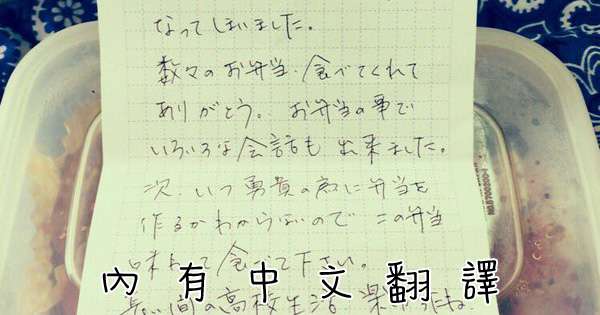 なってしまいました。
数々のお弁当、食べてくれて
ありがとう。お弁当の事で
いろいろな会話も出来ました。
次、いつ勇貴の為に弁当を
作るかわからないので この弁当
味わって食べて下さい。
長い間の高校生活
內有中文翻譯